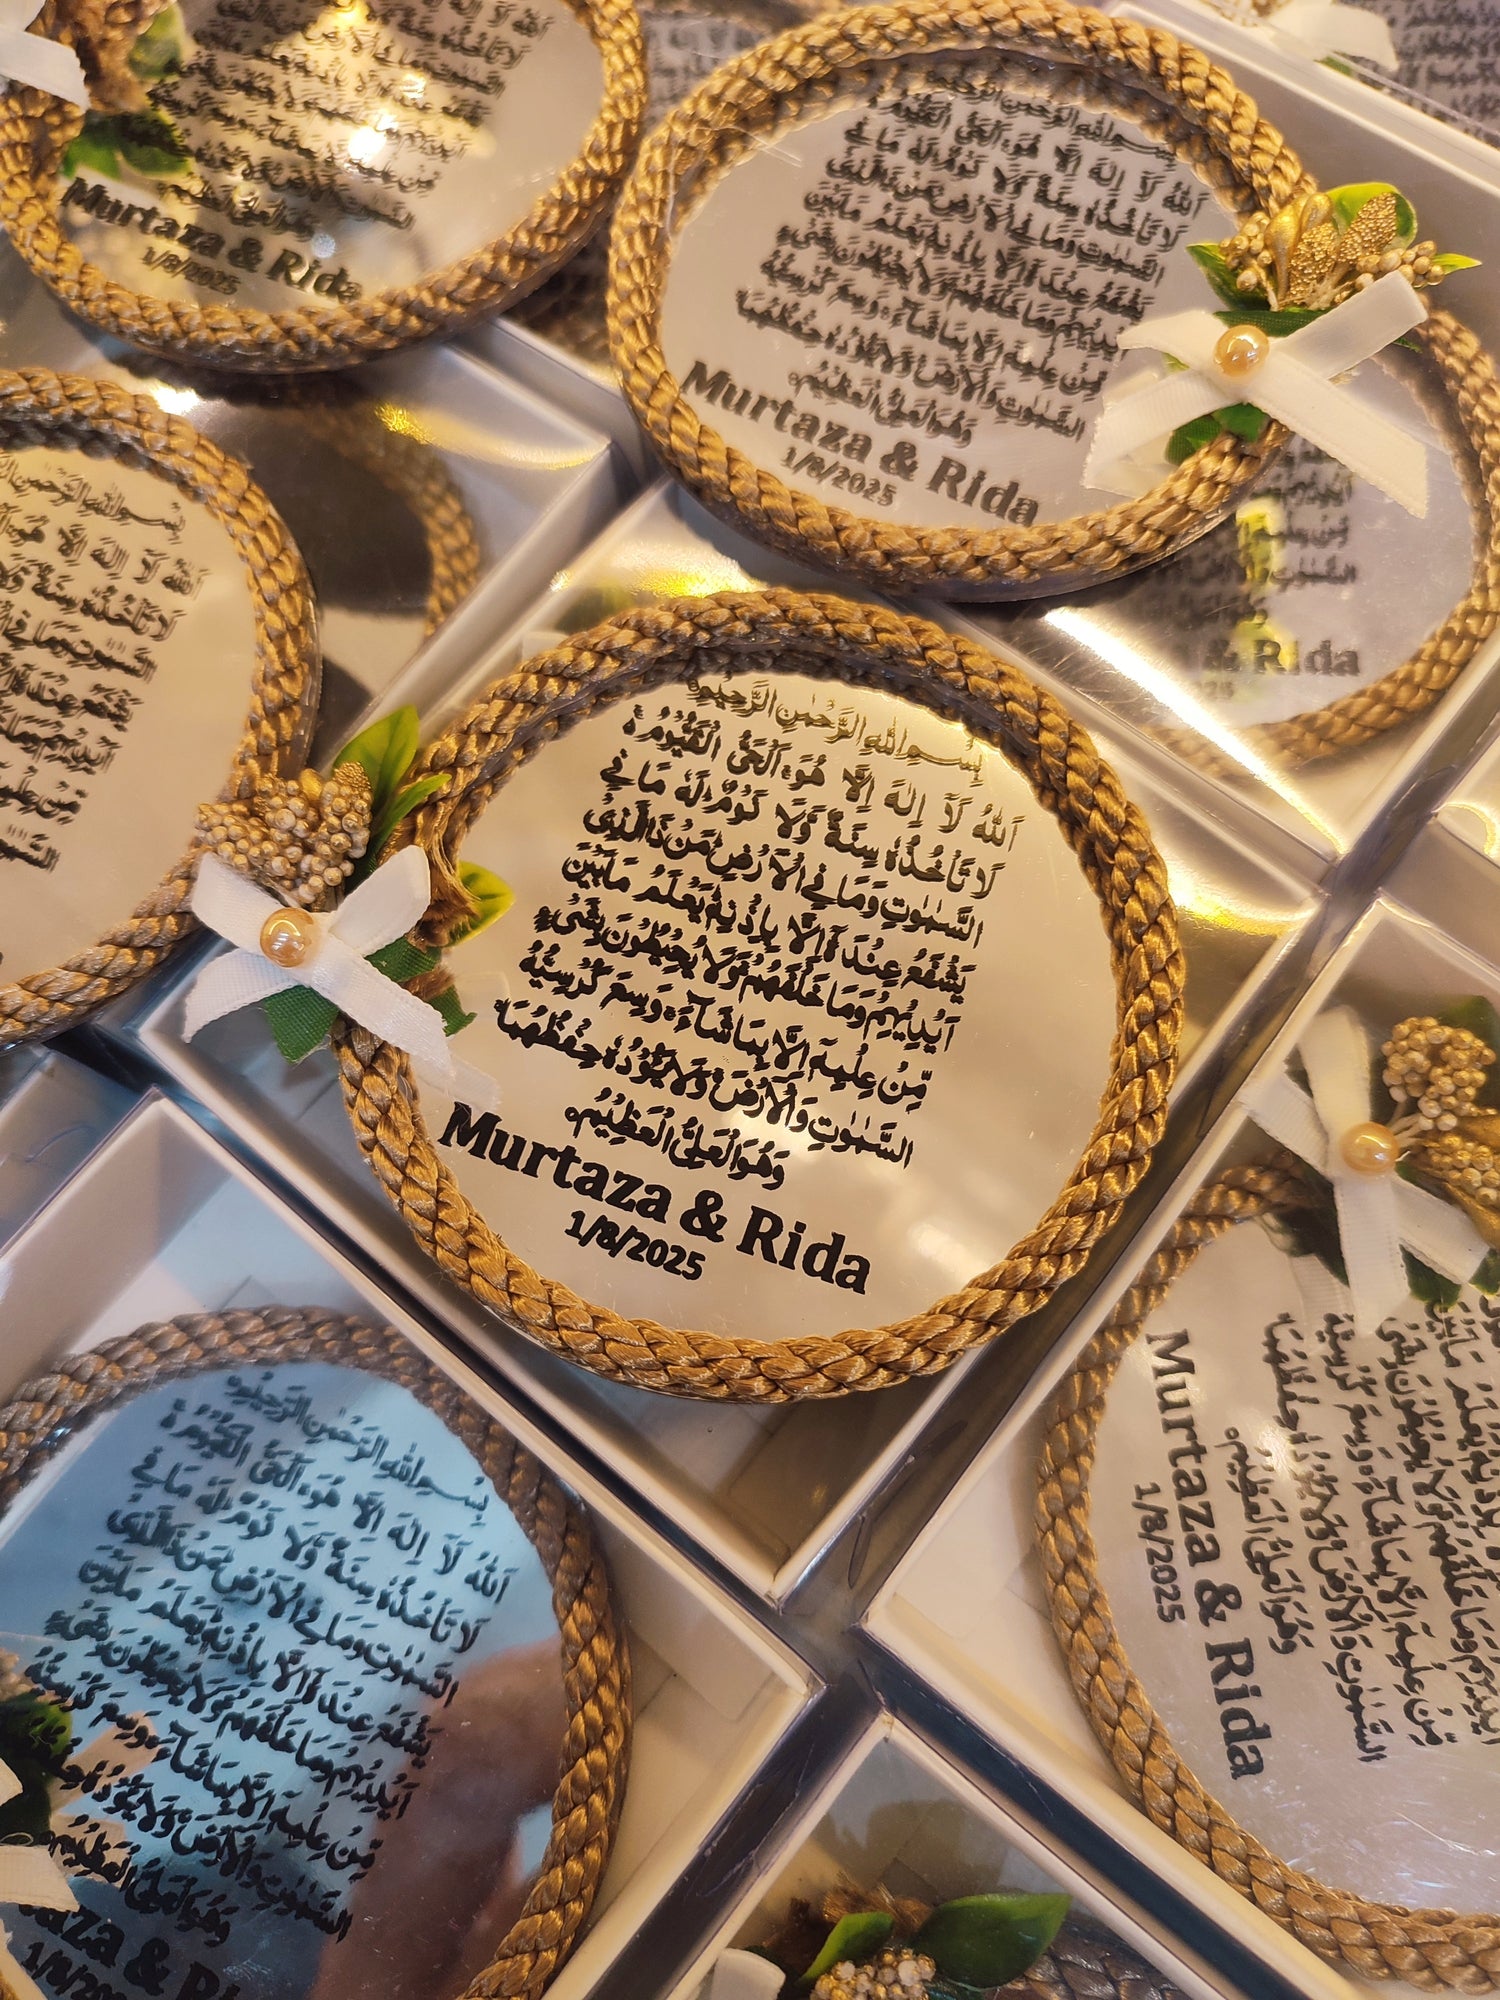 بِسْمِ اللهِ الرَّحْمٰنِ الرَّحِيْمِ
اَللهُ لَآ اِلٰهَ اِلَّا هُوَ ۚ اَلْحَيُّ الْقَيُّوْمُ ۚ
لَا تَاْخُذُهٗ سِنَةٌ وَّلَا نَوْمٌ ؕ لَهٗ مَا فِي
السَّمٰوٰتِ وَمَا فِي الْاَرْضِ ؕ مَنْ ذَا الَّذِيْ
يَشْفَعُ عِنْدَهٗٓ اِلَّا بِاِذْنِهٖ ؕ يَعْلَمُ مَا بَيْنَ
اَيْدِيْهِمْ وَمَا خَلْفَهُمْ ۚ وَلَا يُحِيْطُوْنَ بِشَيْءٍ
مِّنْ عِلْمِهٖٓ اِلَّا بِمَا شَآءَ ۚ وَسِعَ كُرْسِيُّهُ
السَّمٰوٰتِ وَالْاَرْضَ ۚ وَلَا يَـُٔوْدُهٗ حِفْظُهُمَا ۚ
وَهُوَ الْعَلِيُّ الْعَظِيْمُ ○
Murtaza & Rida
1/8/2025